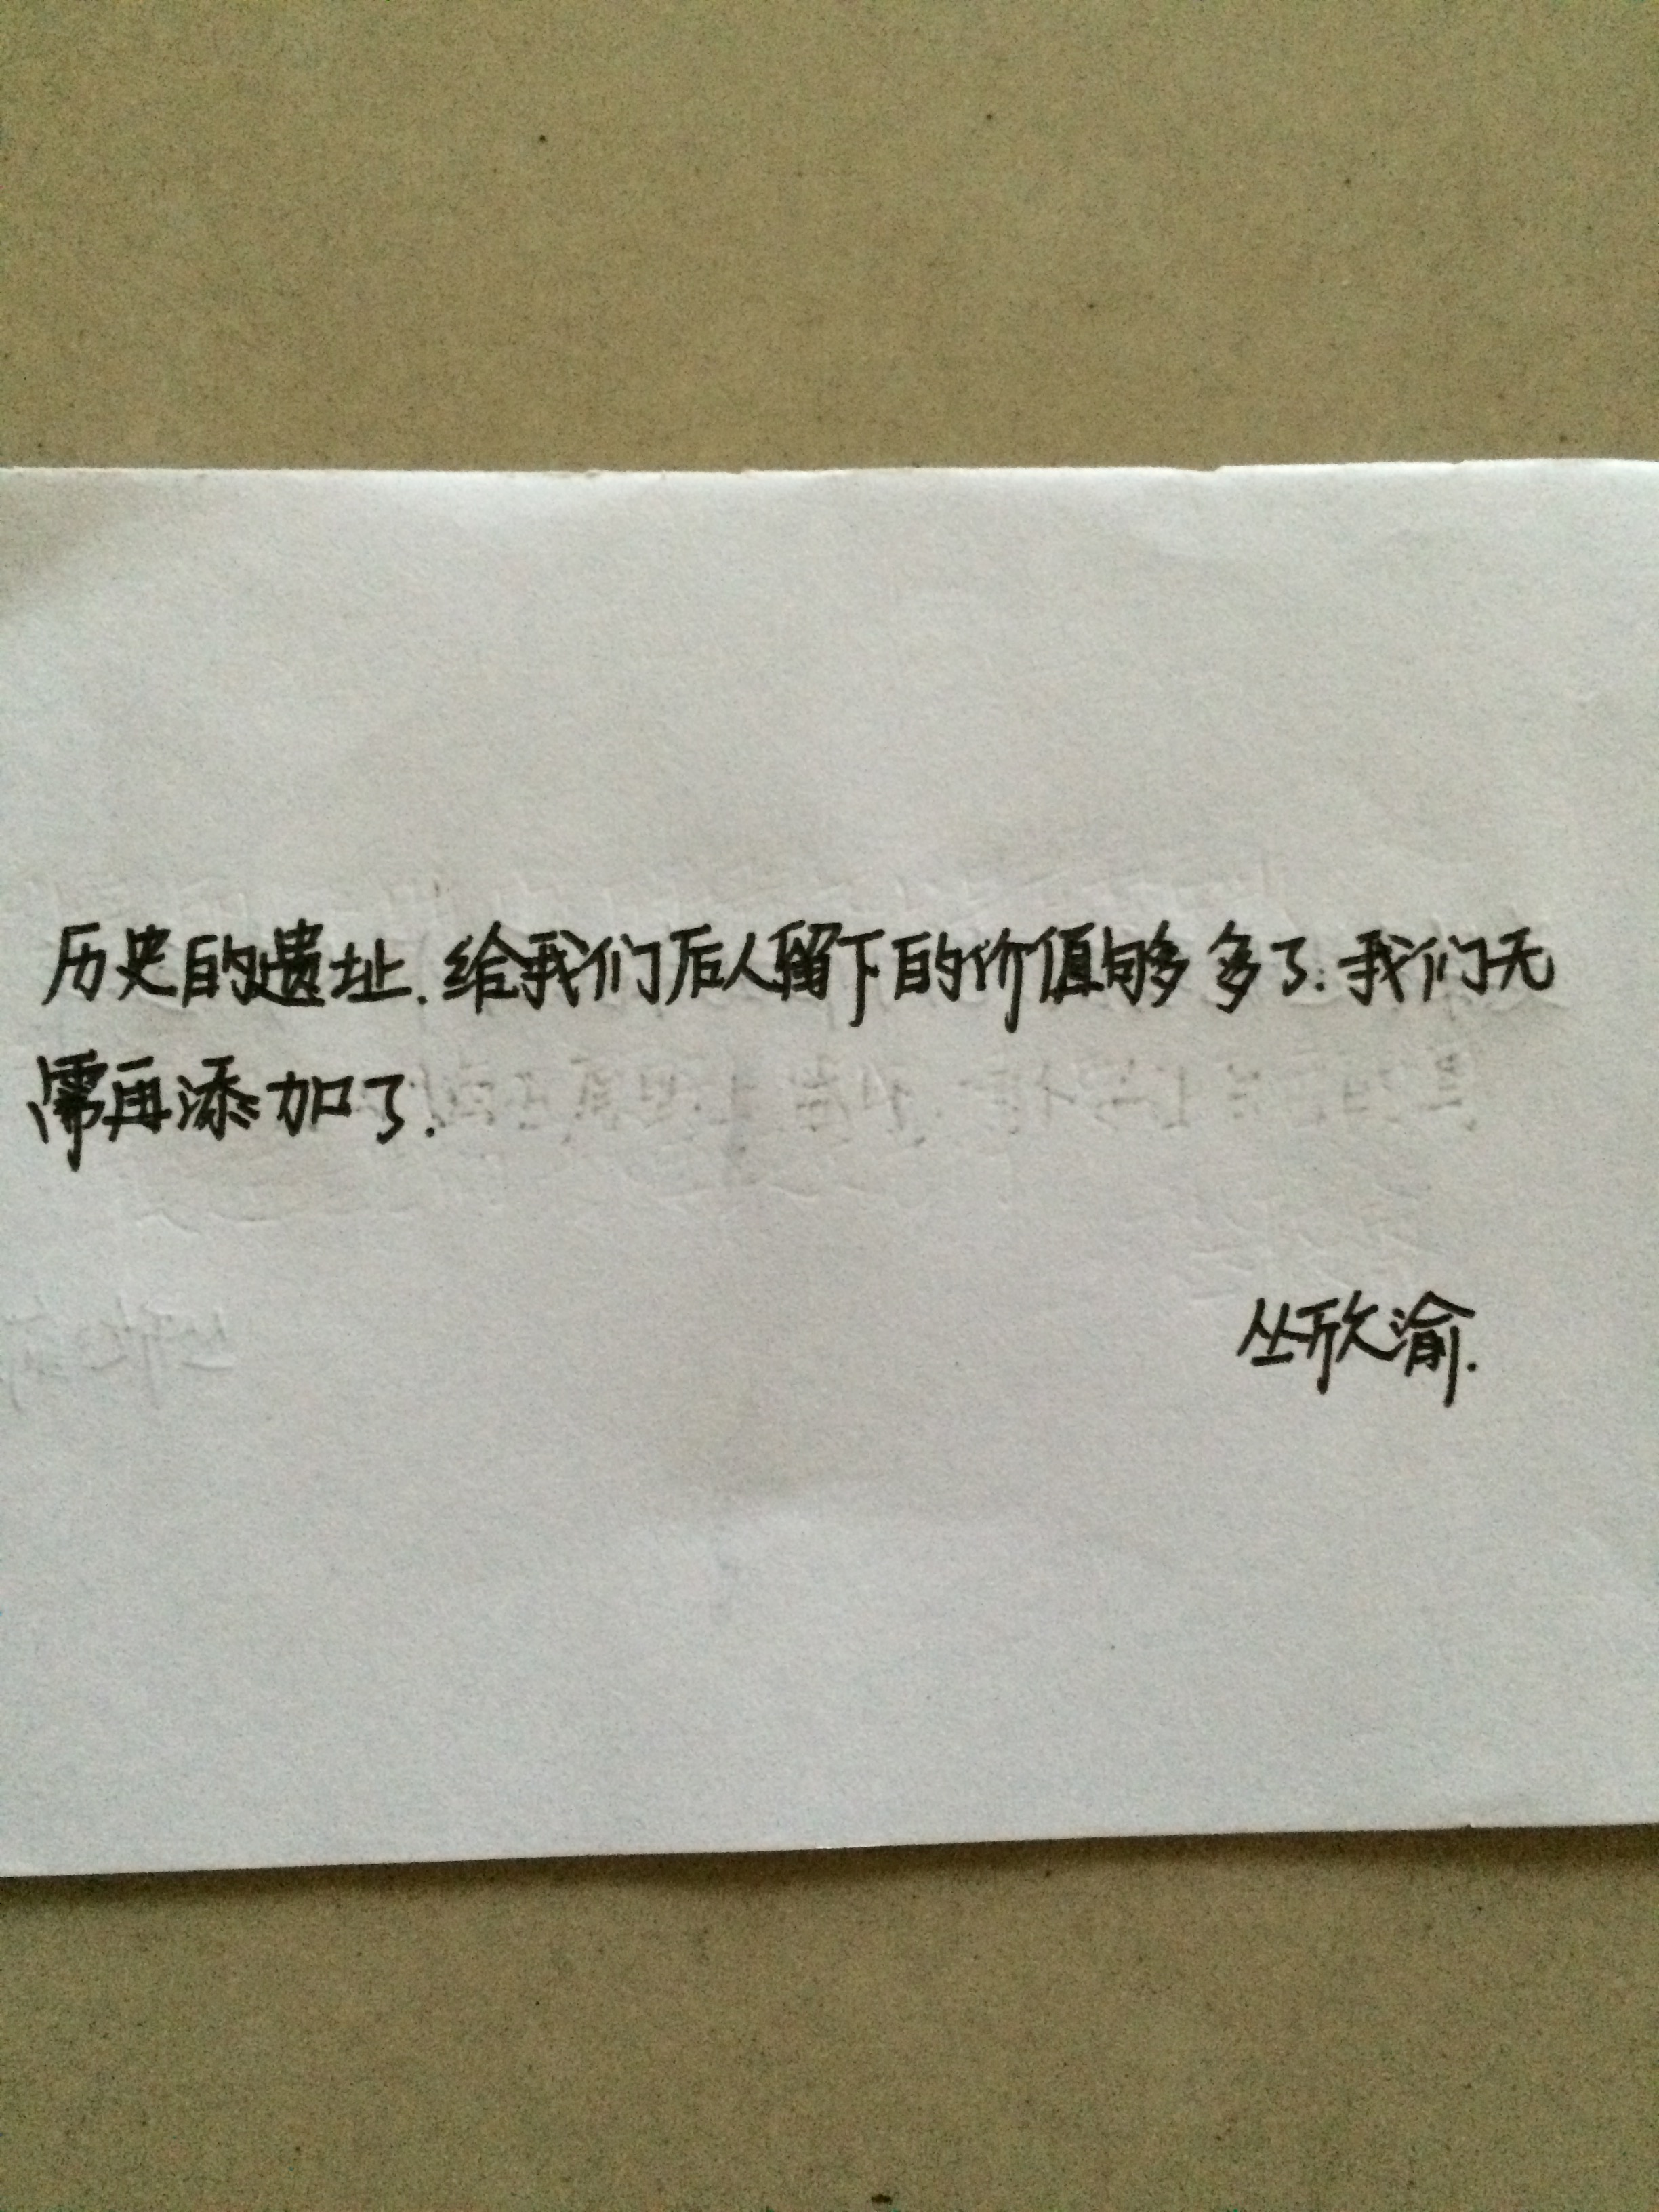 历史的遗址.给我们后人留下的价值够多了.我们无
需再添加了.
丛欣渝.